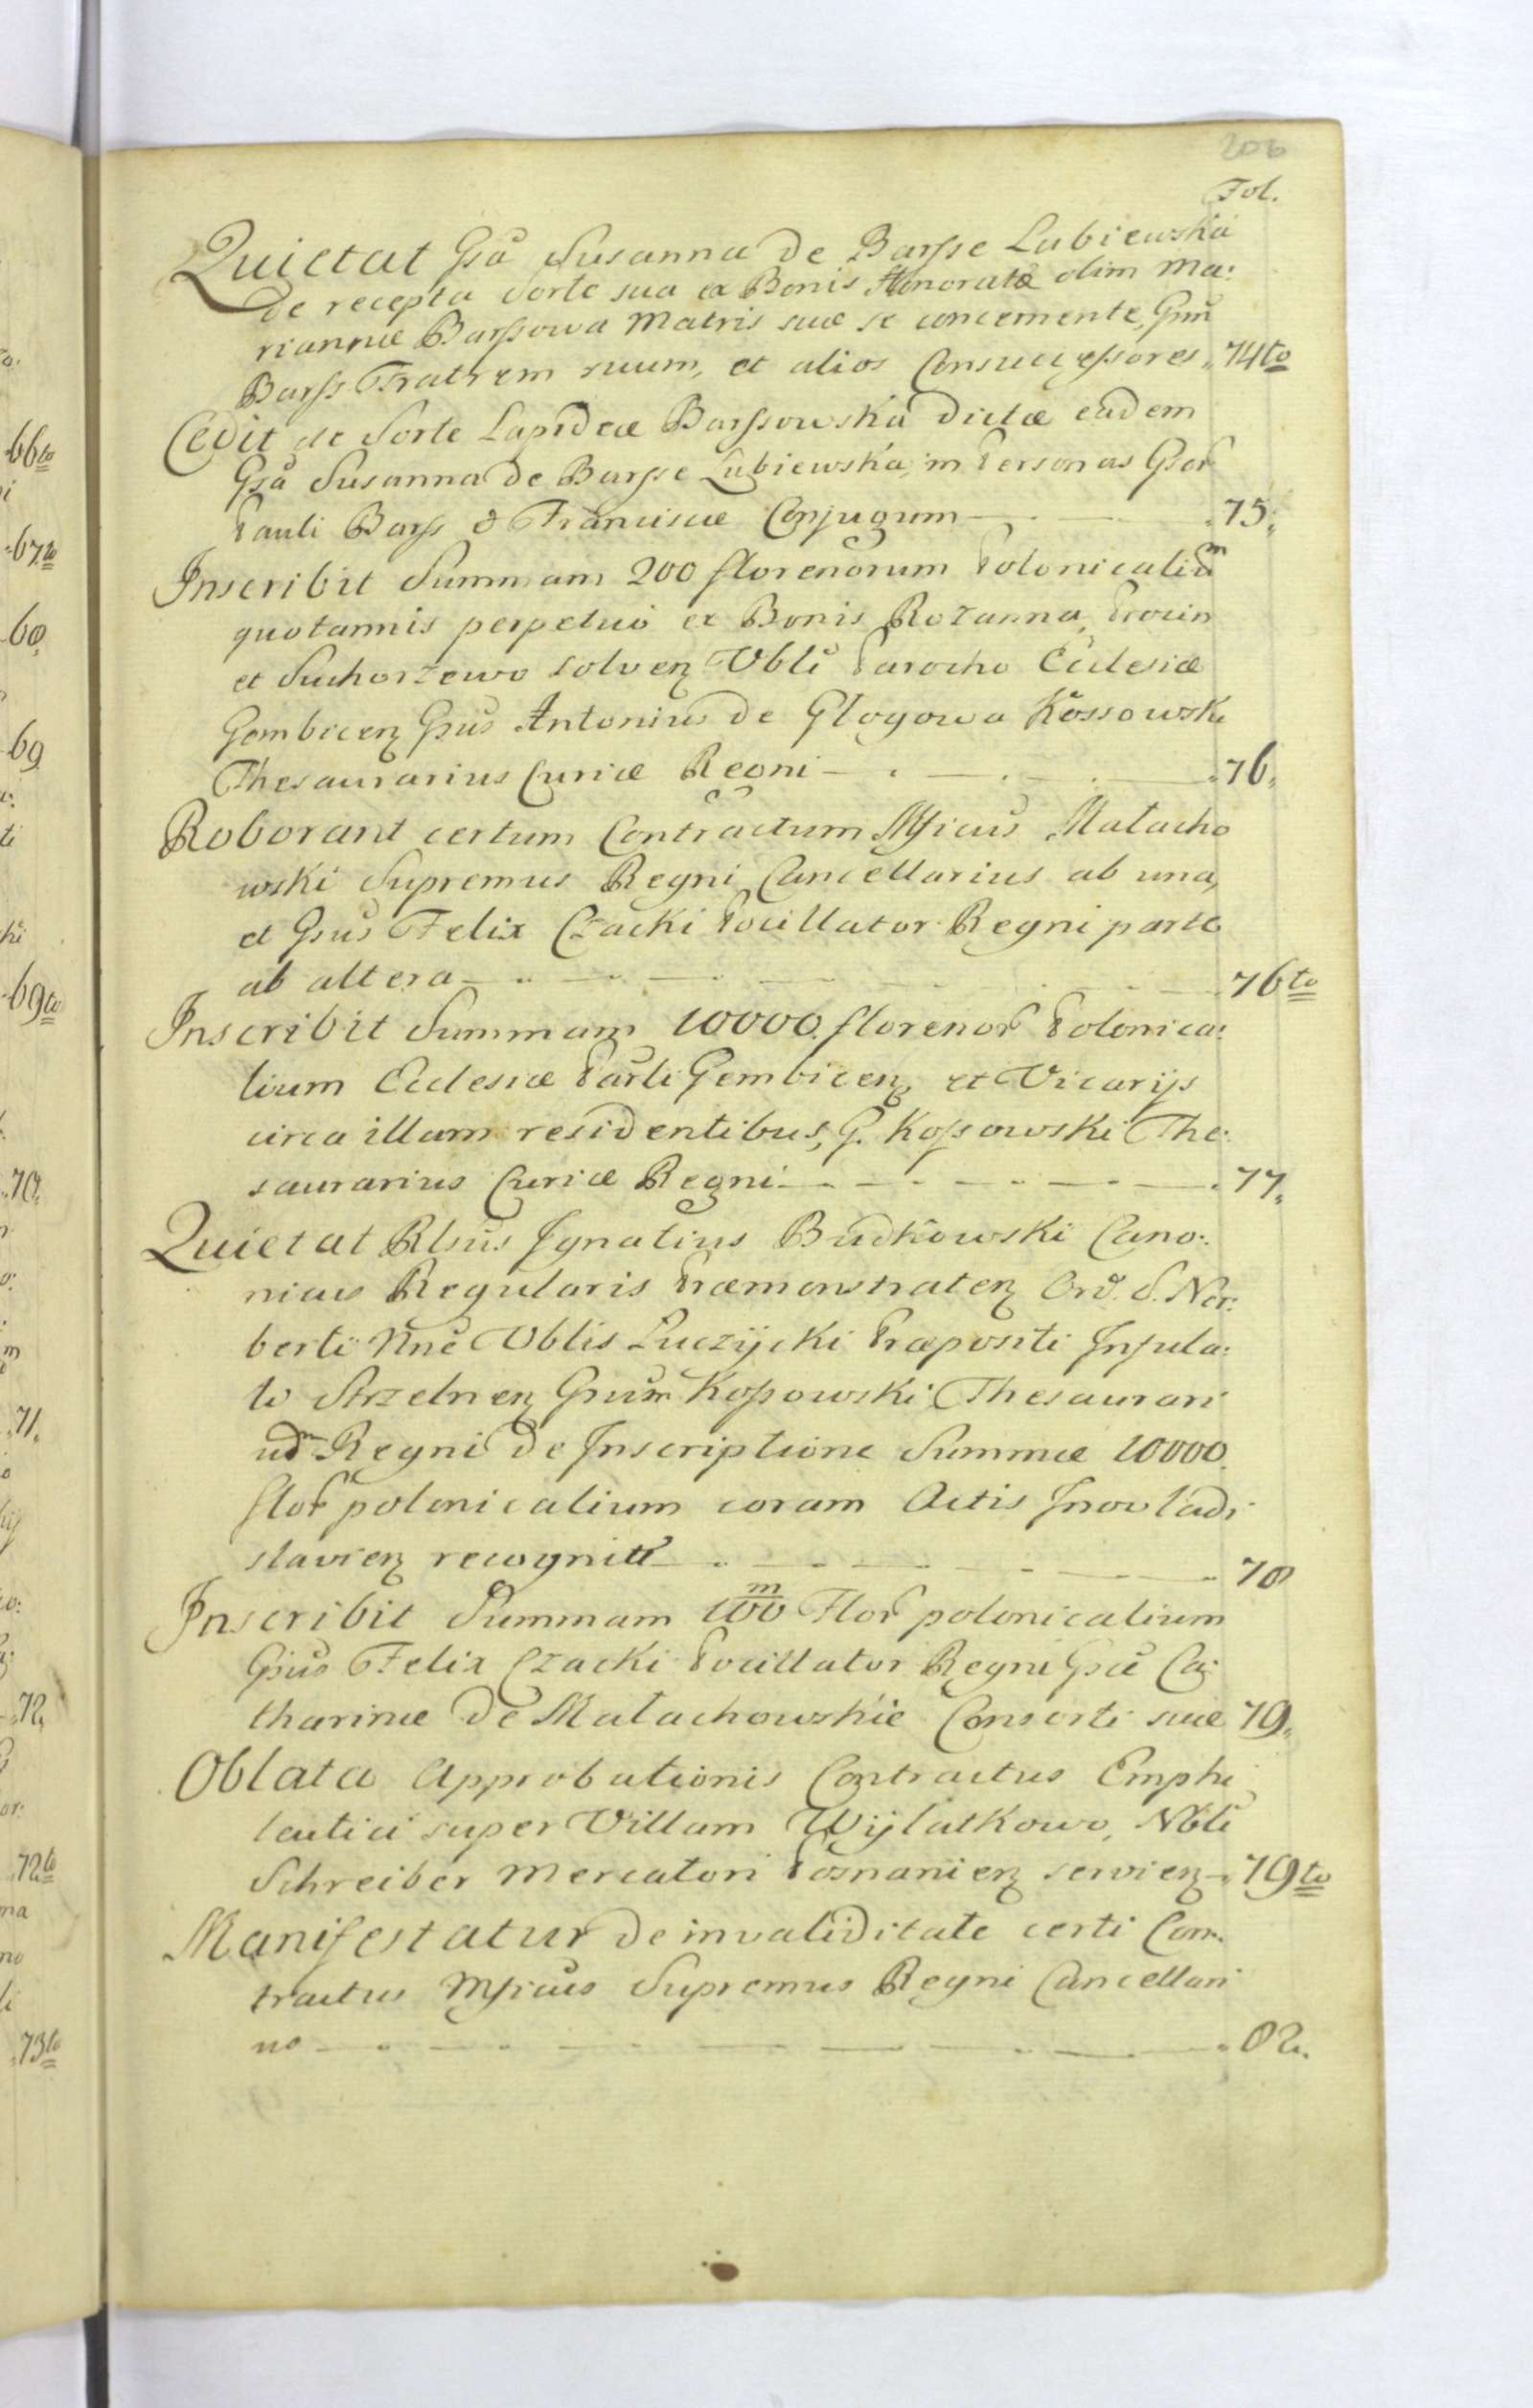 206
Fol.
Quietat Gsa Susanna de Barsse Lubiewska
de recepta Sorte sua ex Bonis Honoratæ olim Ma:
riannæ Barssowa Matris suæ se concernente, Gsum
Barss Fratrem suum, et alios Consuccessores. 74to
Cedit de Sorte Lapideæ Barssowska dictæ eadem
Gsa Susanna de Barsse Lubiewska, in Personas Gsor
Pauli Barss & Franciscæ Conjugum 75.
Inscribit Summam 200 florenorum Polonicaliũm
quotannis perpetuò ex Bonis Rozanna, Procin
et Suchorzewo solvenꝫ Vbli Parocho Ecclesiæ
Gembicenꝫ Gsus Antonius de Glogowa Kossowski
Thesaurarius Curiæ Regni 76.
Roborant certum Contractum Mficus Małacho
wski Supremus Regni Cancellarius ab una,
et Gsus Felix Czacki Pocillator Regni parte
ab altera 76to
Inscribit Summam 10000. florenor Polonica:
lium Ecclesiæ Parli Gembicenꝫ et Vicarijs
circa illam residentibus, G. Kossowski The:
saurarius Curiæ Regni 77.
Quietat Rlsus Ignatius Budkowski Cano:
nicus Regularis Præmonstratenꝫ Ord. S. Nor:
berti Nne Vblis Luczycki Præpositi Infula:
ti Strzelnenꝫ Gsum Kossowski Thesaurari
um Regni de Inscriptione Summæ 10000.
flor polonicalium coram Actis Inovladi
slavienꝫ recognitt 78
Inscribit Summam 100 m Flor polonicalium
Gsus Felix Czacki Pocillator Regni Gsæ Ca:
tharinæ de Małachowskie Consorti suæ 79.
Oblata Approbationis Contractus Emphi
teutici super Villam Wijlatkowo, Nbli
Schreiber Mercatori Posnanienꝫ servienꝫ 79to
Manifestatur de invaliditate certi Con:
tractus Mficus Supremus Regni Cancellari
us 82.